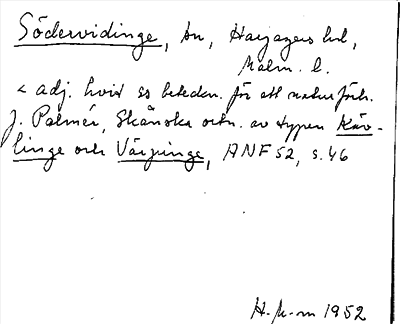 Södervidinge, sn, Harjagers hd,
Malm. l.
< adj. hvid ss beteckn. för ett naturförh.
J. Palmér, Skånska ortn. av typen Käv-
linge och Värpinge, ANF 52, s. 46
H. k-m 1952